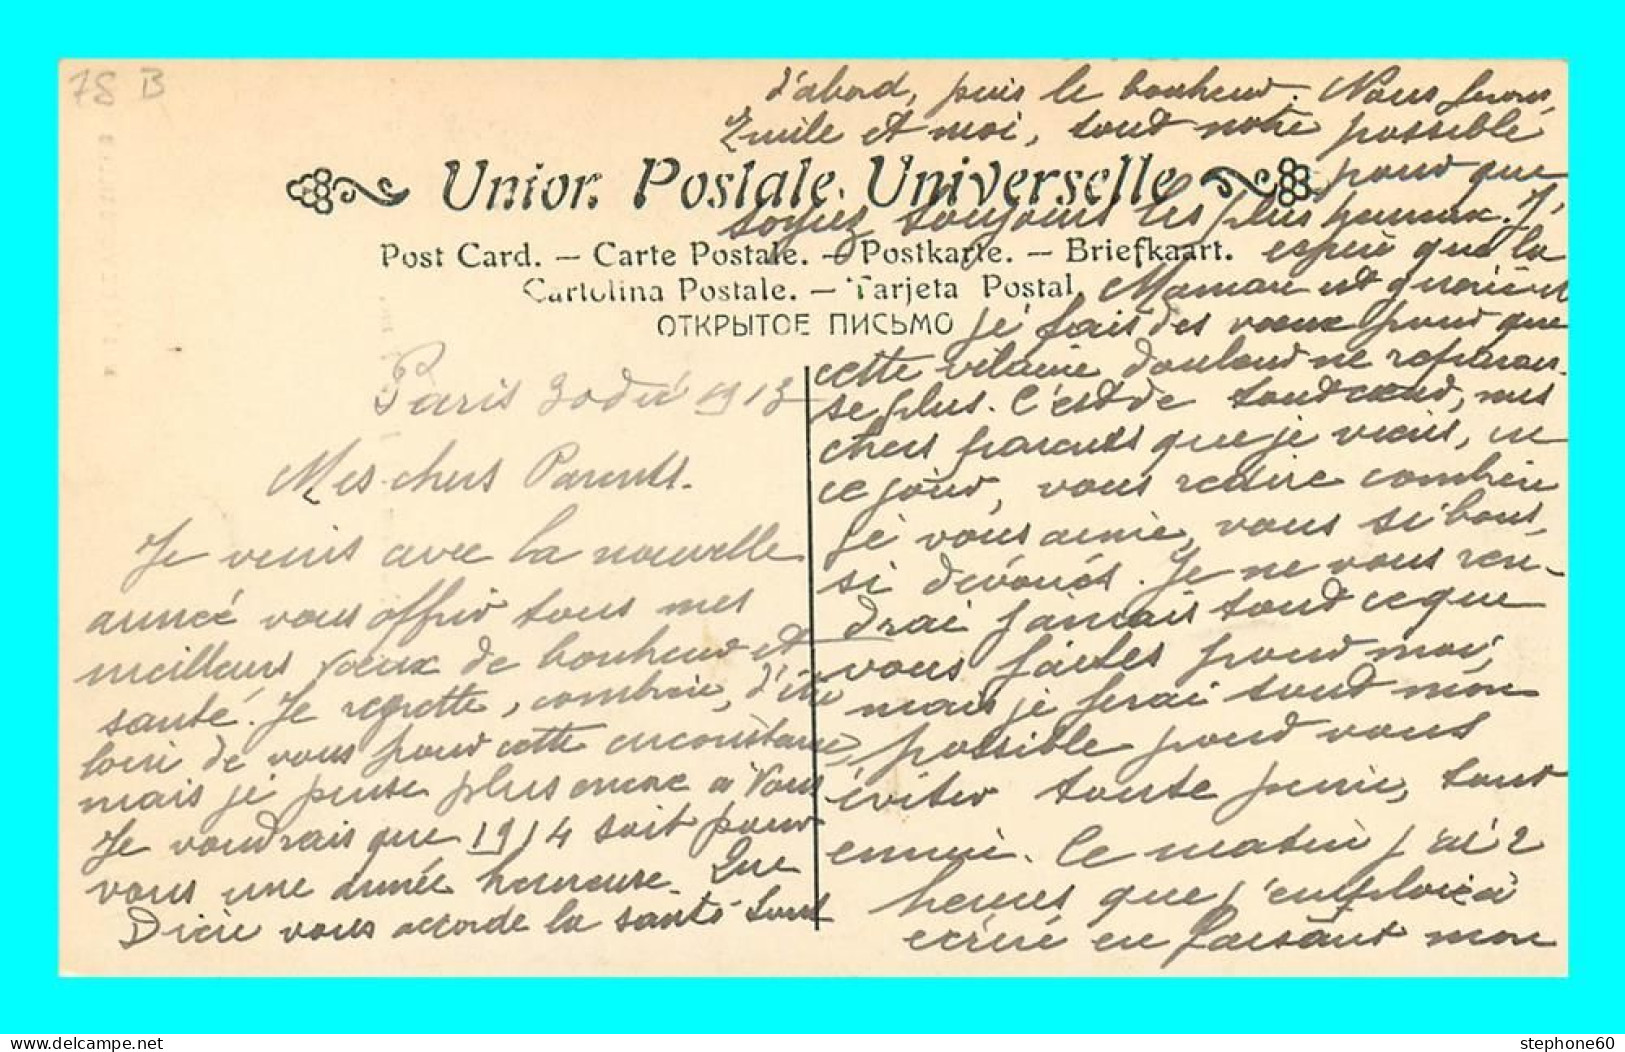 78 B
Union Postale Universelle
Post Card. — Carte Postale. — Postkarte. — Briefkaart.
Cartolina Postale. — Tarjeta Postal.
ОТКРЫТОЕ ПИСЬМО
Paris 30 Dé 1913
Mes chers Parents.
Je viens avec la nouvelle
année vous offrir tous mes
meilleurs voeux de bonheur et
santé. Je regrette, combien, d'être
loin de vous pour cette circonstance,
mais je pense plus encore à Vous
Je voudrais que 1914 soit pour
vous une année heureuse. Que
Dieu vous accorde la santé tout
d'abord, puis le bonheur. Nous ferons,
Emile et moi, tout notre possible
pour que
soyez toujours les plus heureux. J'
espère que la
Maman est guérie et
je fais des voeux pour que
cette vilaine douleur ne reparais-
se plus. C'est de tout coeur, mes
chers parents que je viens, en
ce jour, vous redire combien
je vous aime, vous si bons,
si dévoués. Je ne vous ren-
drai jamais tout ce que
vous faites pour moi,
mais je ferai tout mon
possible pour vous
éviter toute peine, tout
ennui. Ce matin j'ai 2
heures que j'emploie à
écrire en faisant mon
stephone60